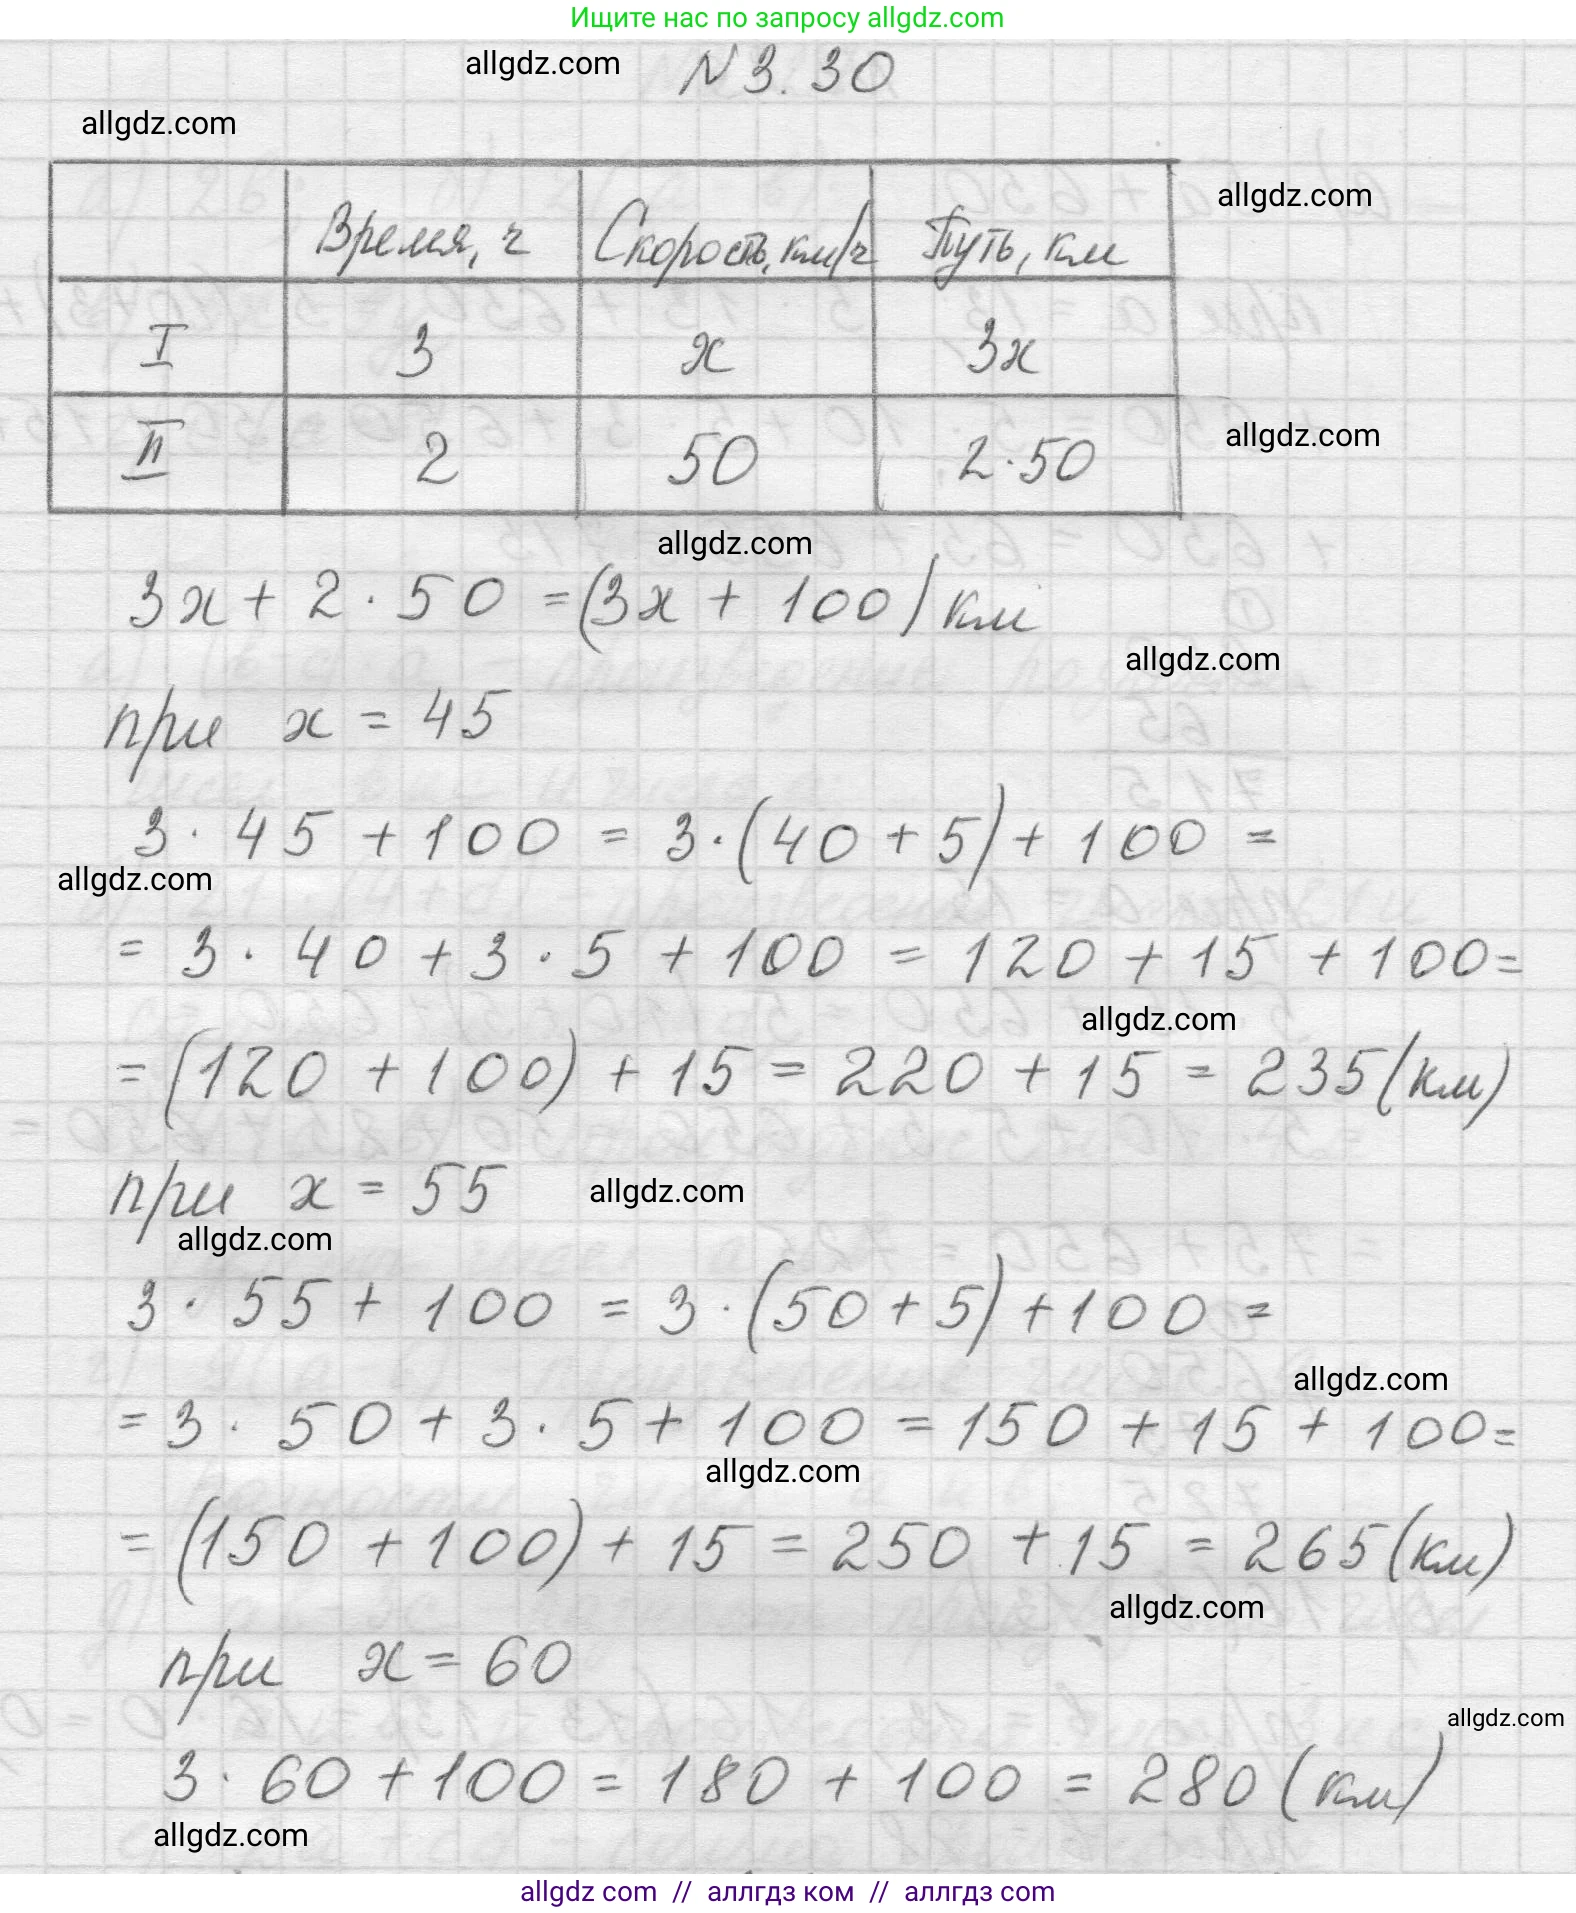 Ищите нас по запросу allgdz.com
allgdz.com
N 3. 30
allgdz.com
allgdz.com
Время, ч Скорость, км/ч Путь, км
I 3 x 3x
II 2 50 2·50
allgdz.com
allgdz.com
3x + 2 · 50 = (3x + 100) км
allgdz.com
при x = 45
3 · 45 + 100 = 3·(40 + 5) + 100 =
allgdz.com
= 3 · 40 + 3 · 5 + 100 = 120 + 15 + 100 =
allgdz.com
= (120 + 100) + 15 = 220 + 15 = 235 (км)
при x = 55
allgdz.com
allgdz.com
3 · 55 + 100 = 3 · (50 + 5) + 100 =
allgdz.com
= 3 · 50 + 3 · 5 + 100 = 150 + 15 + 100 =
allgdz.com
= (150 + 100) + 15 = 250 + 15 = 265 (км)
allgdz.com
при x = 60
allgdz.com
3 · 60 + 100 = 180 + 100 = 280 (км)
allgdz.com
allgdz com // аллгдз ком // allgdz.com